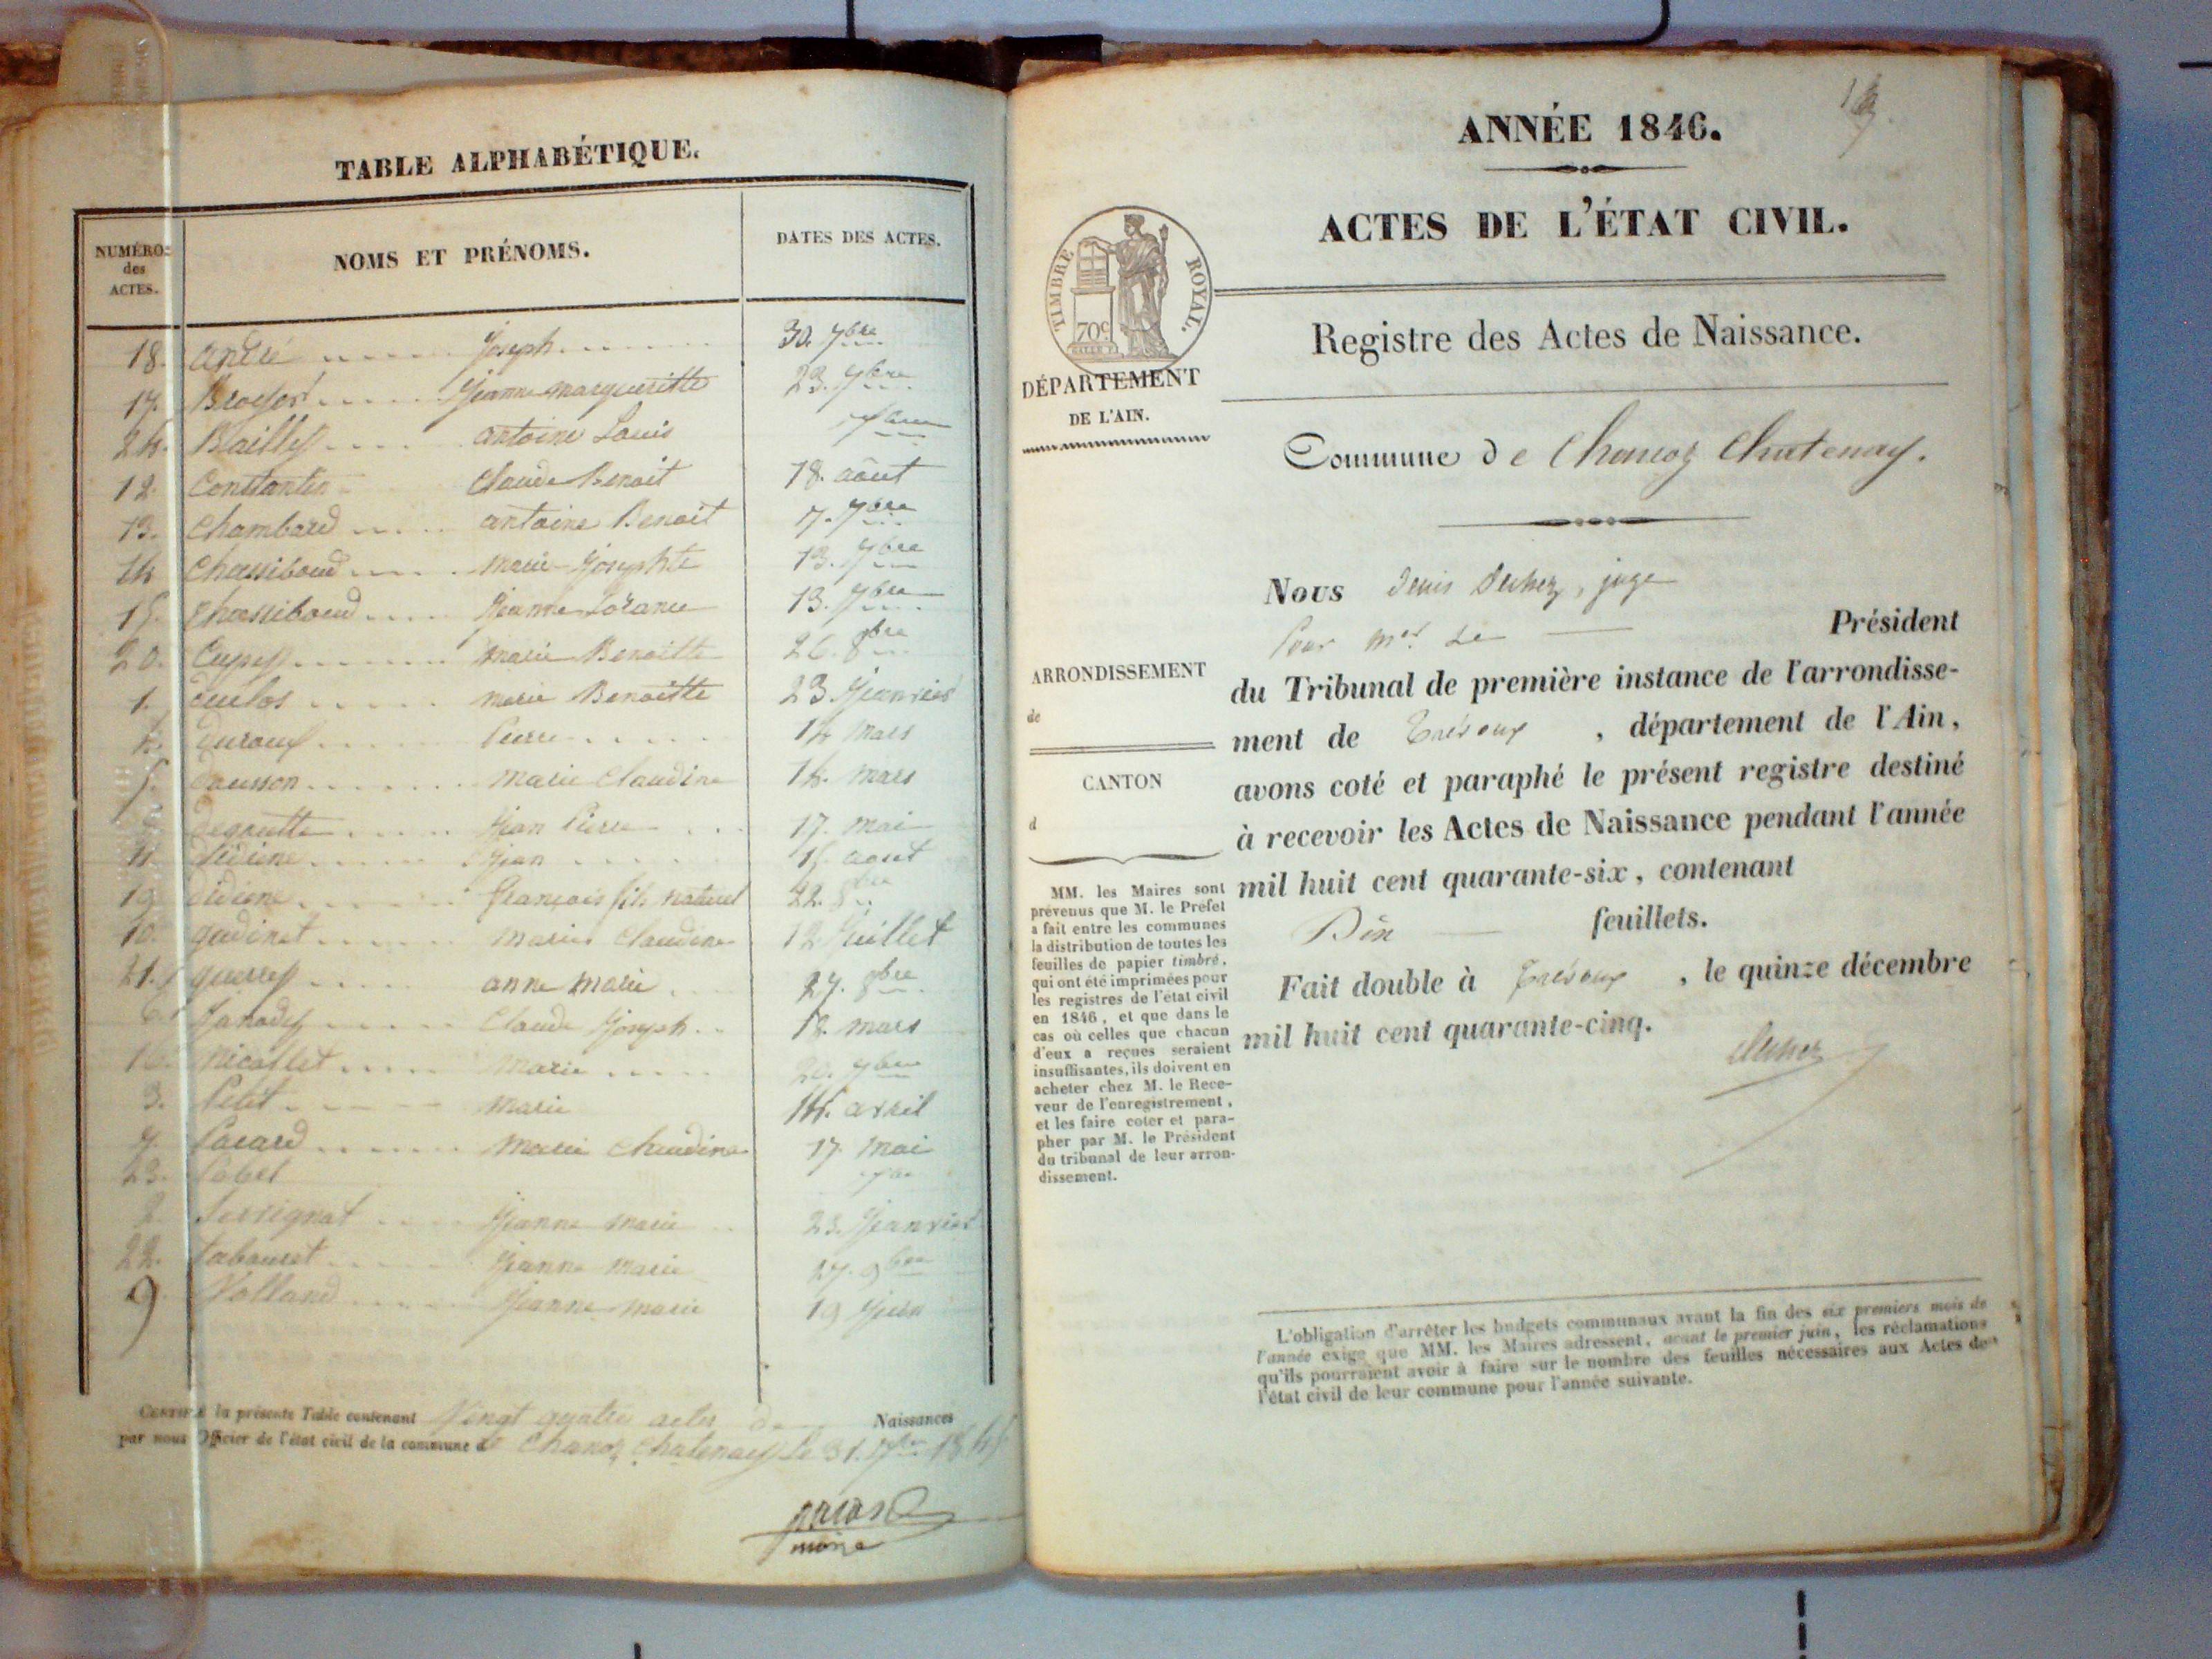 TABLE ALPHABÉTIQUE.
NUMÉROS
des
ACTES.
NOMS ET PRÉNOMS.
DATES DES ACTES.
18. André Joseph 30. 7bre
17. Jeanne margueritte 23. 7bre
24. Bailly antoine Louis
12. Constantin Claude Benoit 18. août
13. Chambard antoine Benoit 7. 7bre
14 Chassiboud marie Josephte 13. 7bre
15. Chassiboud Jeanne 13. 7bre
20. marie Benoitte 26. 8bre
1. duclos marie Benoitte 23 Jeanvier
4. Pierre 14 mars
5. marie Claudine 14. mars
degoutte Jean Pierre 17. mai
11. Jean 15. aout
19 françois fils naturel 22. 8bre
10. gadinet marie Claudine 12 Juillet
21. guerry anne marie 27. 8bre
6. Janody Claude Joseph 18. mars
16. nicollet marie 20. 7bre
3. Petit marie 14. avril
7. Pacard marie Claudine 17. mai
23.
2. Servignat Jeanne marie 23. Jeanvier
22. tabouret Jeanne marie 27. 9bre
9 Volland Jeanne marie 19 Juin
CERTIFIÉ la présente Table contenant Vingt quatre actes de Naissances
par nous Officier de l'état civil de la commune de Chanoz Chatenay le 31. Xbre 1845
pacard
maire
ANNÉE 1846.
ACTES DE L'ÉTAT CIVIL.
TIMBRE ROYAL.
70c
Registre des Actes de Naissance.
DÉPARTEMENT
DE L'AIN.
Commune de Chanoz Chatenay.
ARRONDISSEMENT
de
CANTON
d
MM. les Maires sont
prévenus que M. le Préfet
a fait entre les communes
la distribution de toutes les
feuilles de papier timbré,
qui ont été imprimées pour
les registres de l'état civil
en 1846, et que dans le
cas où celles que chacun
d'eux a reçues seraient
insuffisantes, ils doivent en
acheter chez M. le Rece-
veur de l'enregistrement,
et les faire coter et para-
pher par M. le Président
du tribunal de leur arron-
dissement.
Nous Denis Duhez, juge
Pour Mr. Le Président
du Tribunal de première instance de l'arrondisse-
ment de Trévoux , département de l'Ain,
avons coté et paraphé le présent registre destiné
à recevoir les Actes de Naissance pendant l'année
mil huit cent quarante-six, contenant
Dix feuillets.
Fait double à Trévoux , le quinze décembre
mil huit cent quarante-cinq.
Duhez
L'obligation d'arrêter les budgets communaux avant la fin des six premiers mois de
l'année exige que MM. les Maires adressent, avant le premier juin, les réclamations
qu'ils pourraient avoir à faire sur le nombre des feuilles nécessaires aux Actes de
l'état civil de leur commune pour l'année suivante.